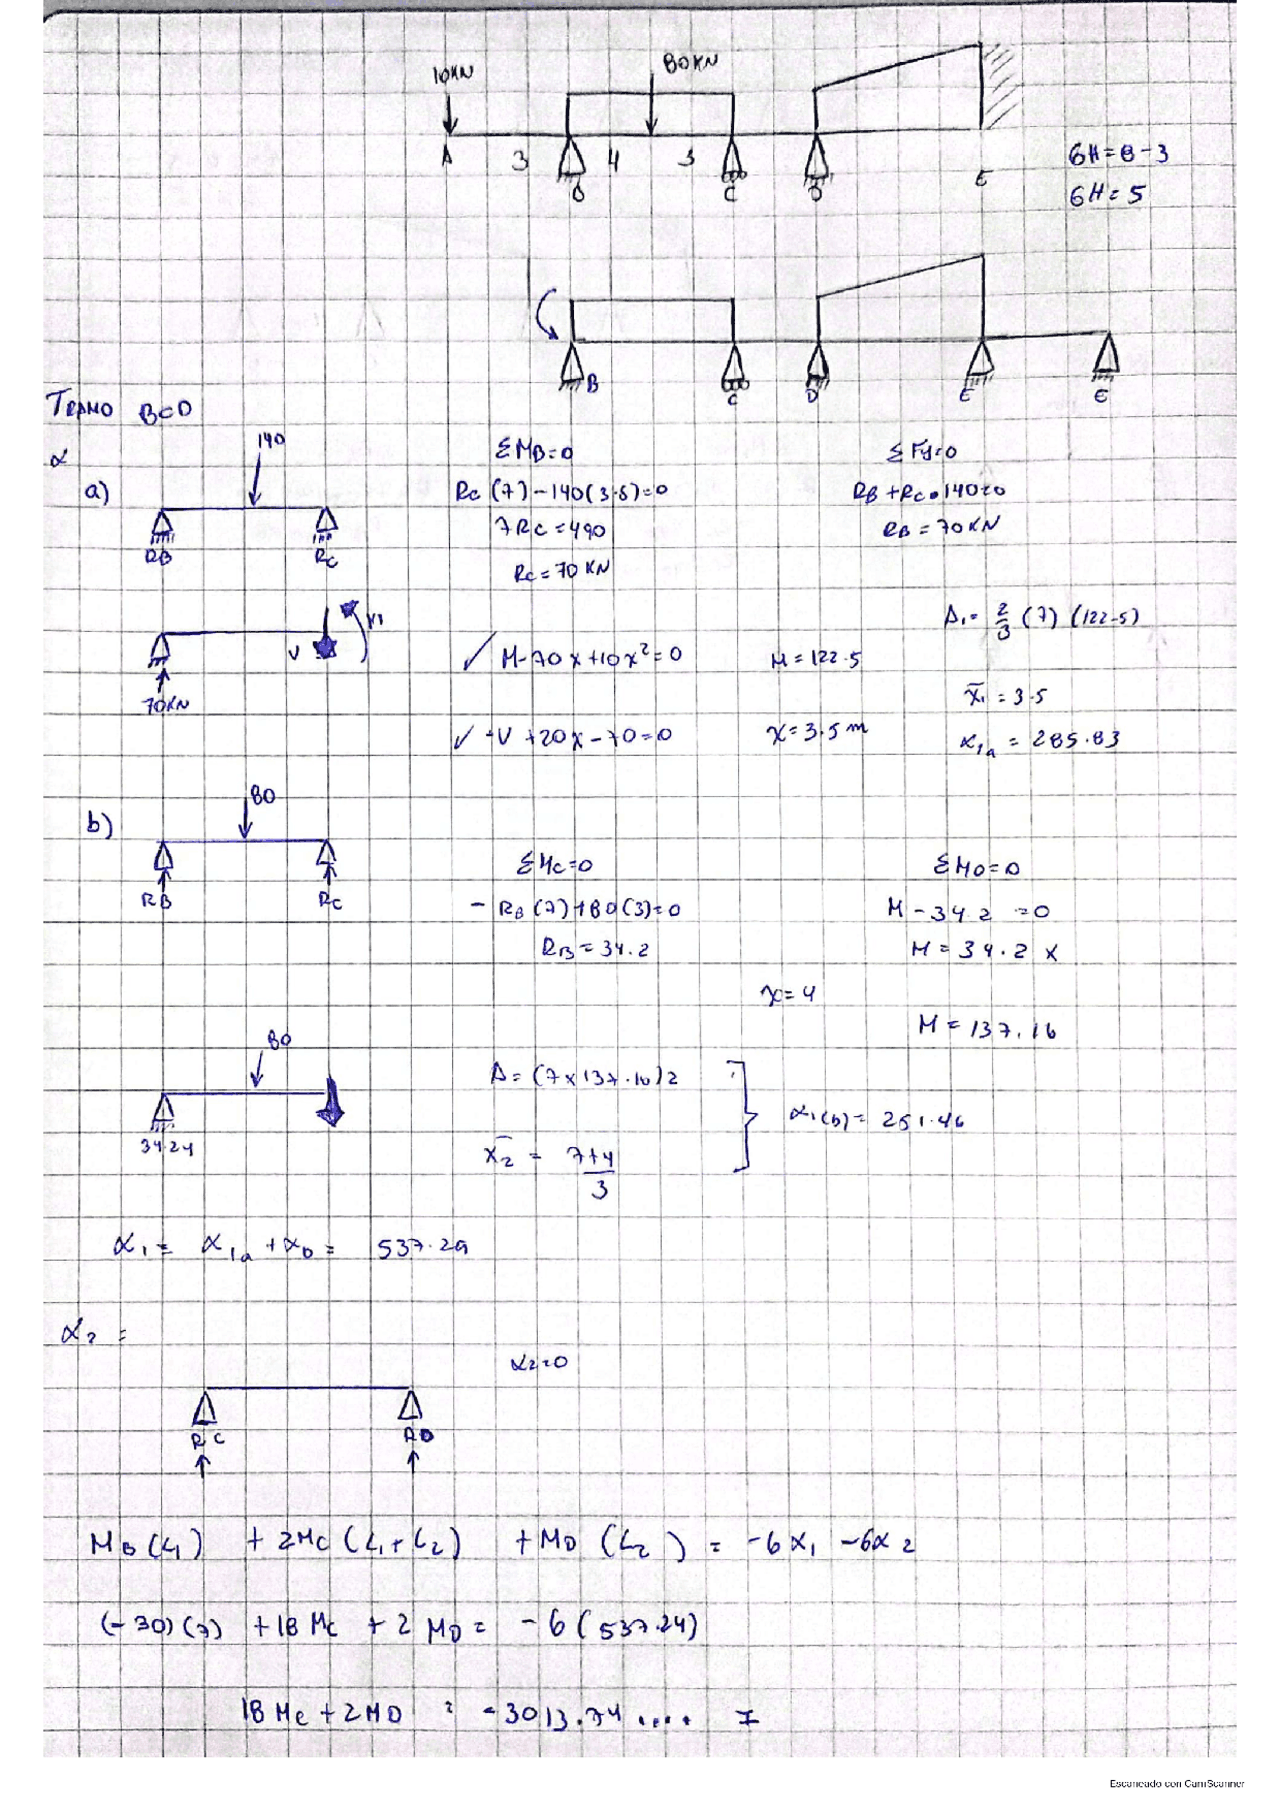 10KN
80KN
A 3 B 4 3 C D E
GH=8-3
GH=5
B C D E E'
TRAMO BCD
α
a)
140
RB RC
ΣMB=0
Rc (7) -140(3.5)=0
7RC=490
Rc=70 KN
ΣFy=0
RB+Rc-140=0
RB=70KN
70KN
V
M
✓ M-70x+10x²=0
✓ +V+20x-70=0
M=122.5
x=3.5m
A₁= 2/3 (7) (122.5)
x̄₁=3.5
α₁ₐ = 285.83
b)
80
RB RC
ΣMc=0
- RB(7)+80(3)=0
RB=34.2
ΣMo=0
M-34.2 =0
M=34.2 x
x=4
M=137.16
80
34.24
A=(7x137.16)2
x̄₂ = 7+4/3
α₁(b)= 251.46
α₁= α₁ₐ+αb= 537.29
α₂ =
α₂=0
RC RD
MB(L₁) +2Mc(L₁+L₂) +MD (L₂) = -6α₁ -6α2
(-30)(7) +18Mc + 2MD= -6(537.24)
18Mc+2MD = -3013.74.... I
Escaneado con CamScanner